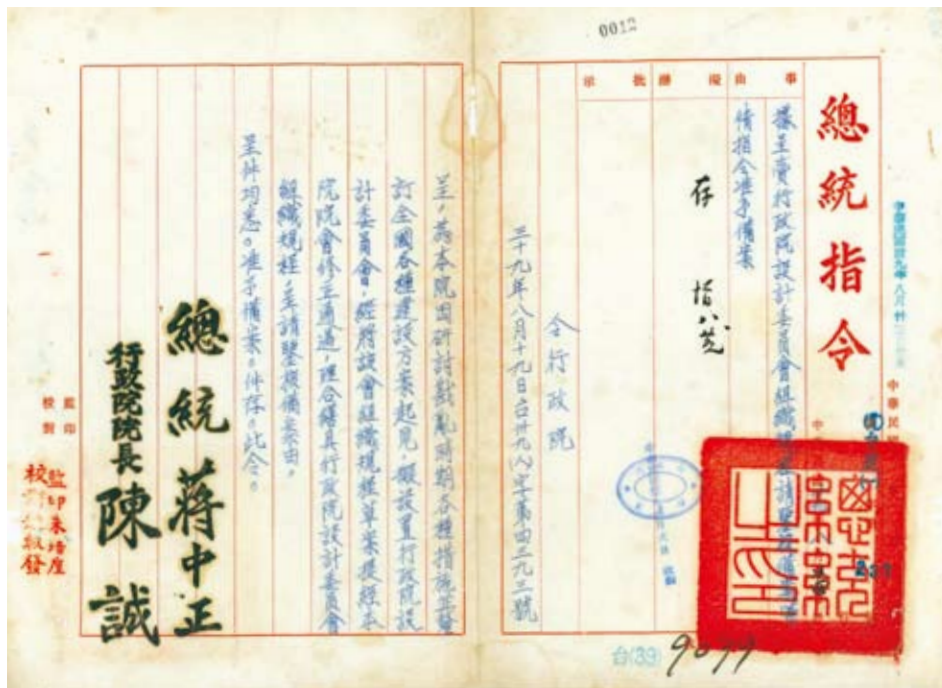 0012
總統指令
事由
擬辦
批示
據呈賷行政院設計委員會組織規程請鑒核備案等
情指令准予備案
存
令行政院
三十九年八月十九日台卅九(人)字第四三九三號
呈,為本院因研討戡亂時期各種措施並釐
訂全國各種建設方案起見,擬設置行政院設
計委員會,經將該會組織規程草案提經本
院院會修正通過,理合繕具行政院設計委員會
組織規程,呈請鑒核備案由。
呈件均悉。准予備案。件存。此令。
總統 蔣中正
行政院院長 陳誠
監印
校對
監印朱培垕
校對
台(39)
中華民國
總統之印